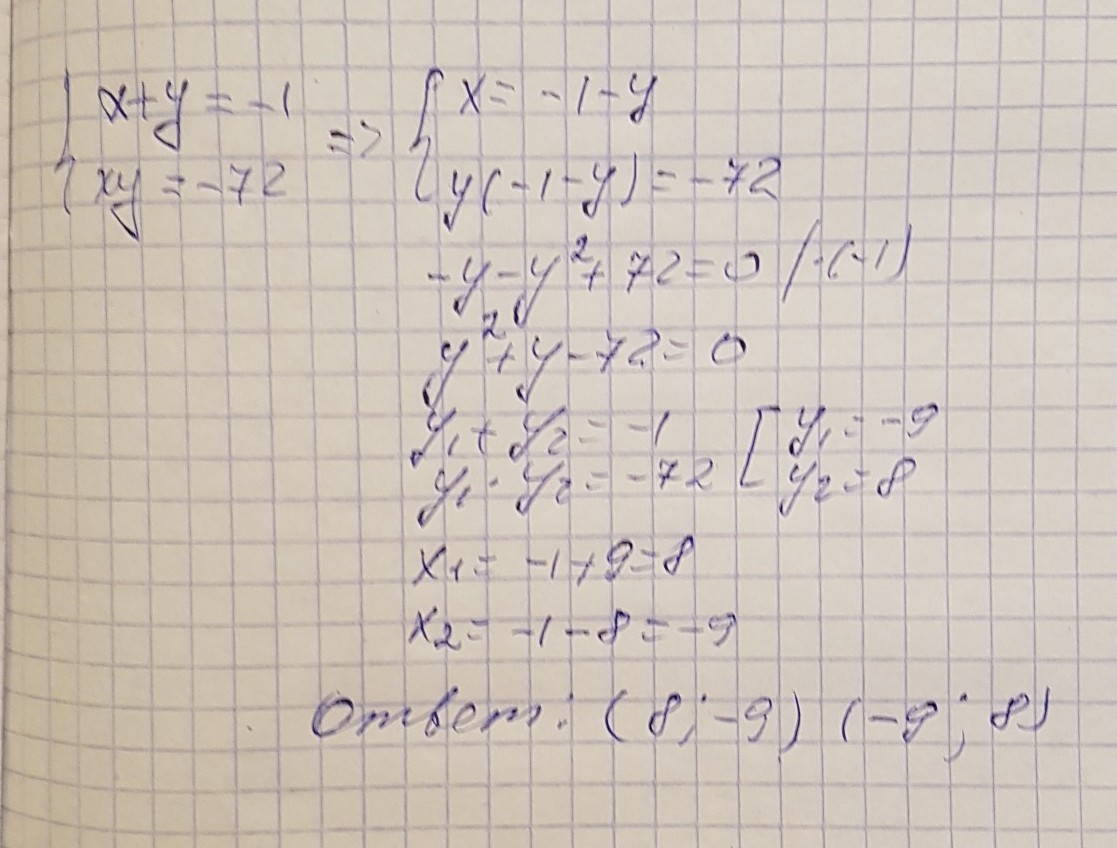 { x+y = -1 => { x = -1-y
{ xy = -72 { y(-1-y) = -72
-y-y²+72=0 /·(-1)
y²+y-72=0
y₁+y₂=-1 [ y₁=-9
y₁·y₂=-72 [ y₂=8
x₁= -1+9=8
x₂= -1-8=-9
Ответ: (8;-9) (-9;8)